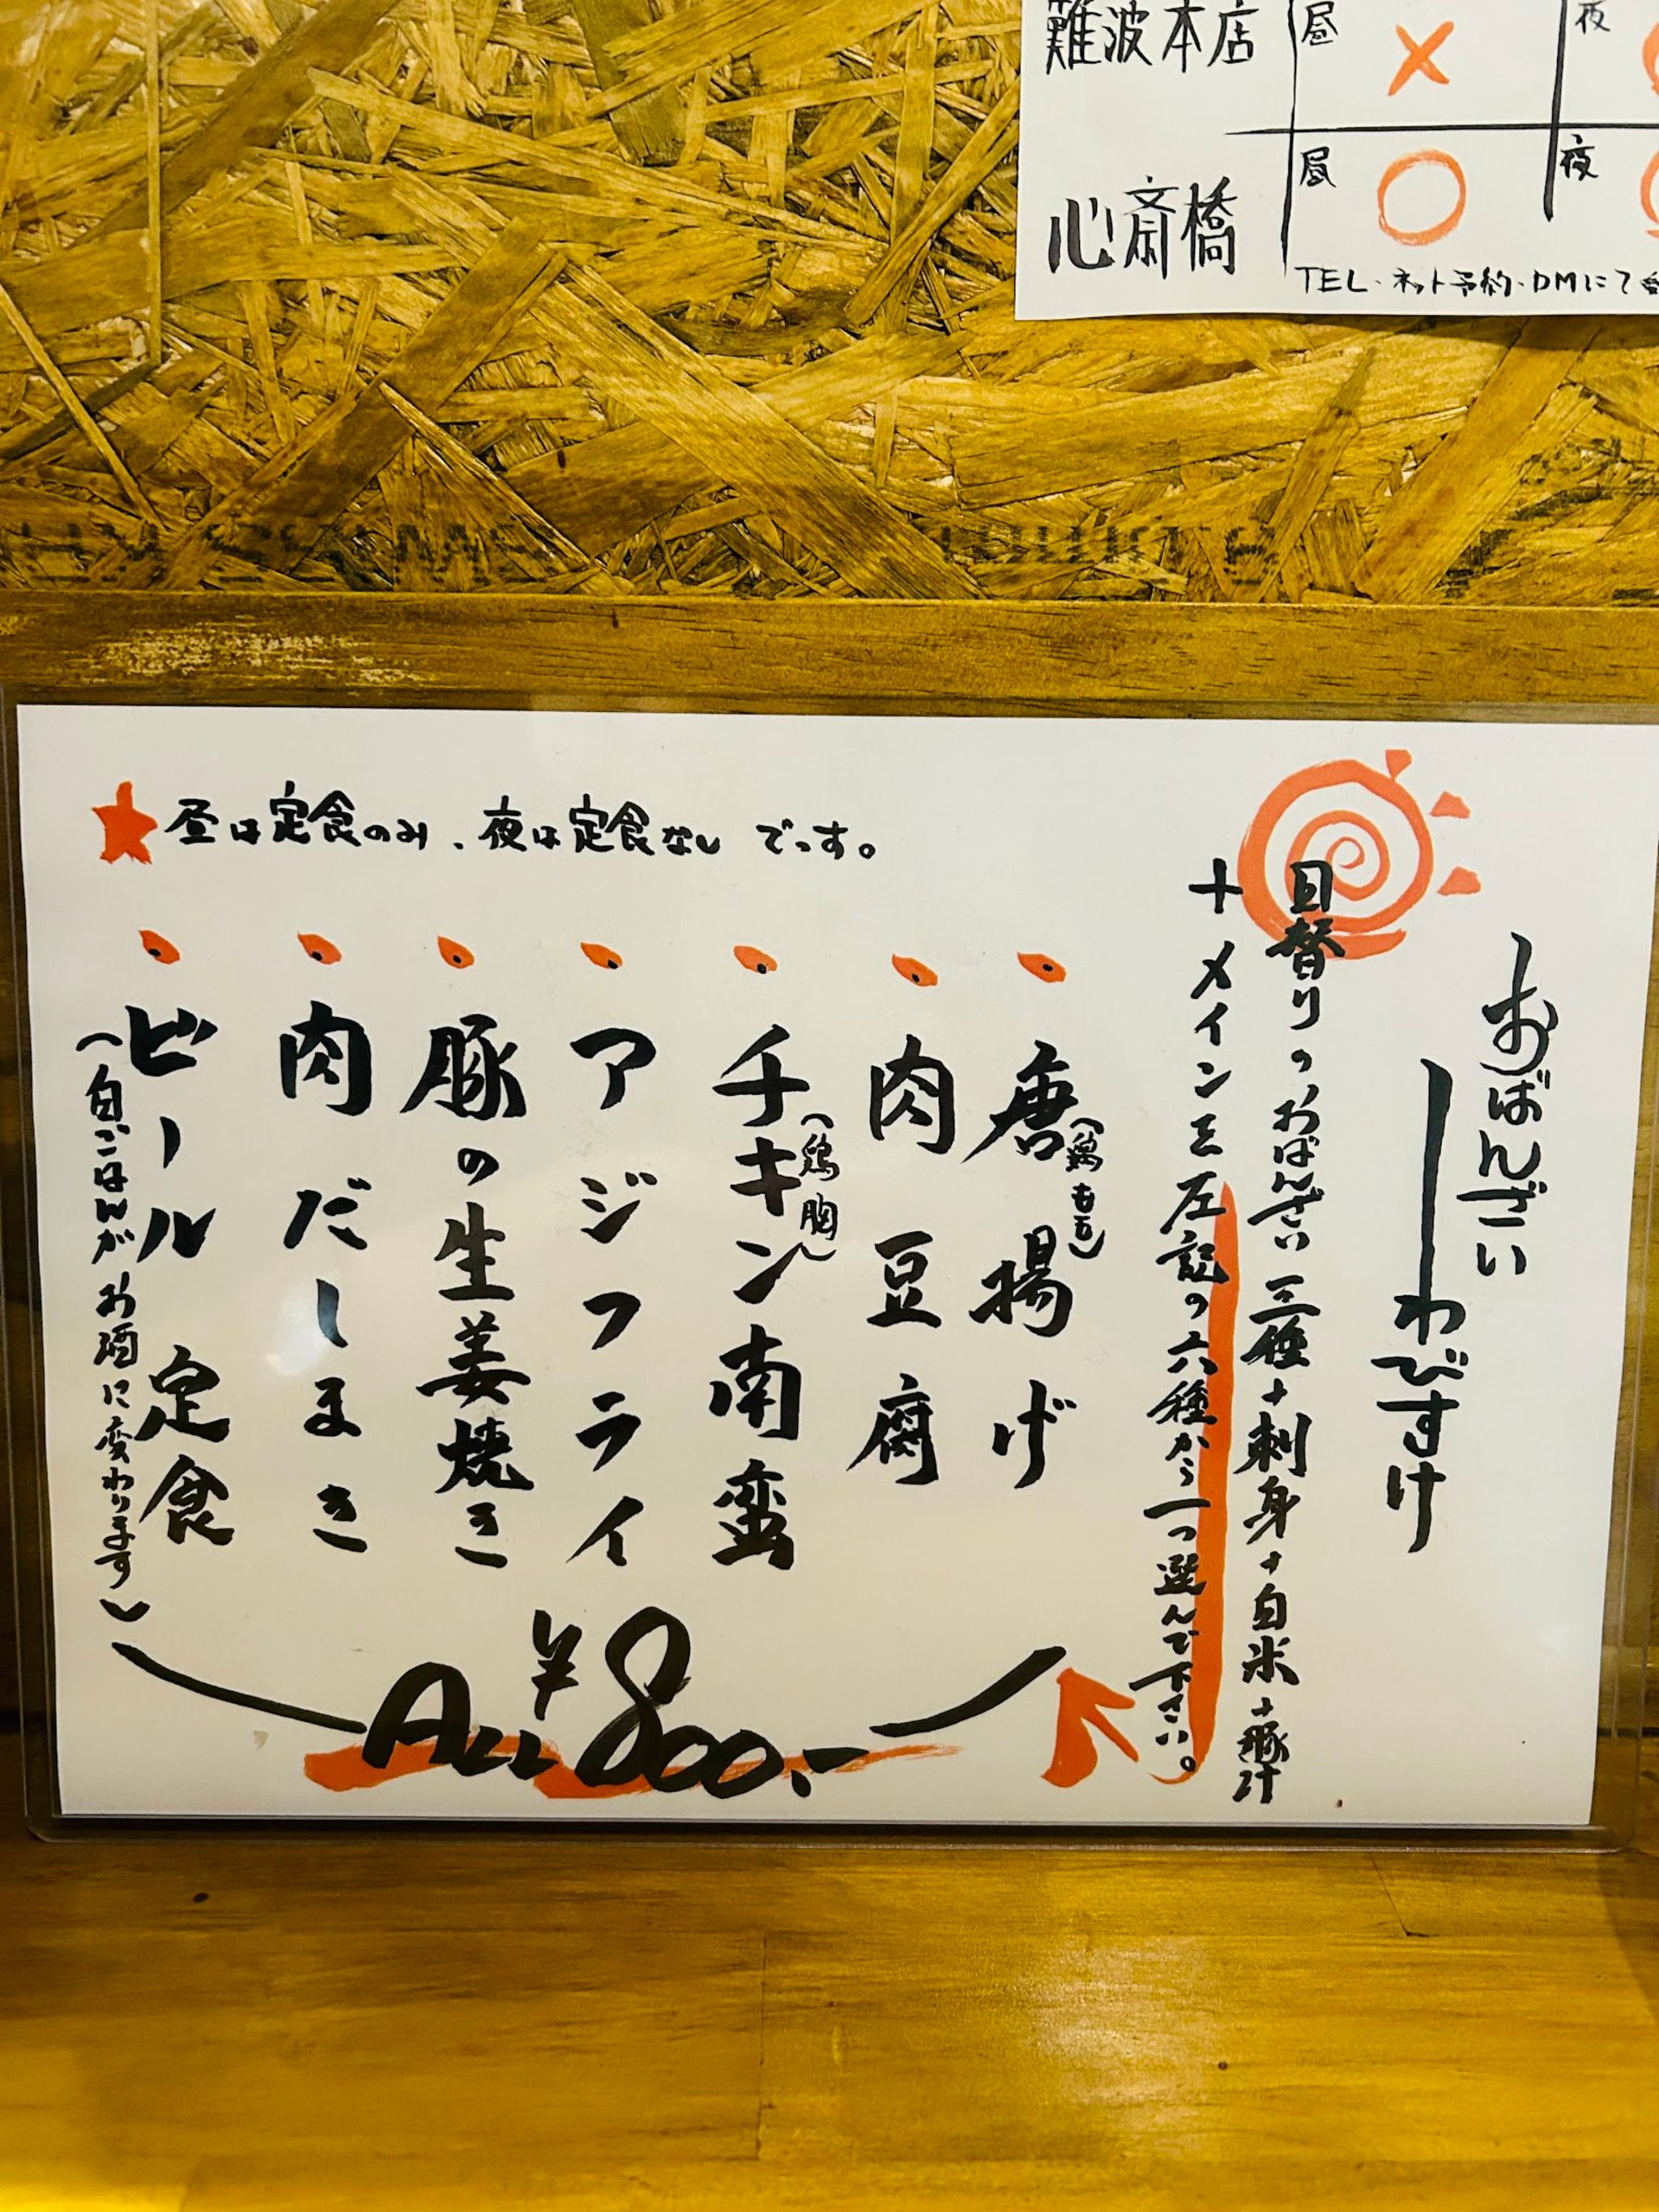 難波本店
昼
×
夜
心斎橋
昼
○
夜
TEL・ネット予約・DMにて
★昼は定食のみ、夜は定食なしでっす。
おばんざい
わびすけ
日替りのおばんざい三種+刺身+白米+豚汁
+メインを左記の六種から一つ選んで下さい。
・唐揚げ
(鶏もも)
・肉豆腐
・チキン南蛮
(鶏胸)
・アジフライ
・豚の生姜焼き
・肉だしまき
・ビール定食
(白ごはんがお酒に変わります)
ALL ¥800.-